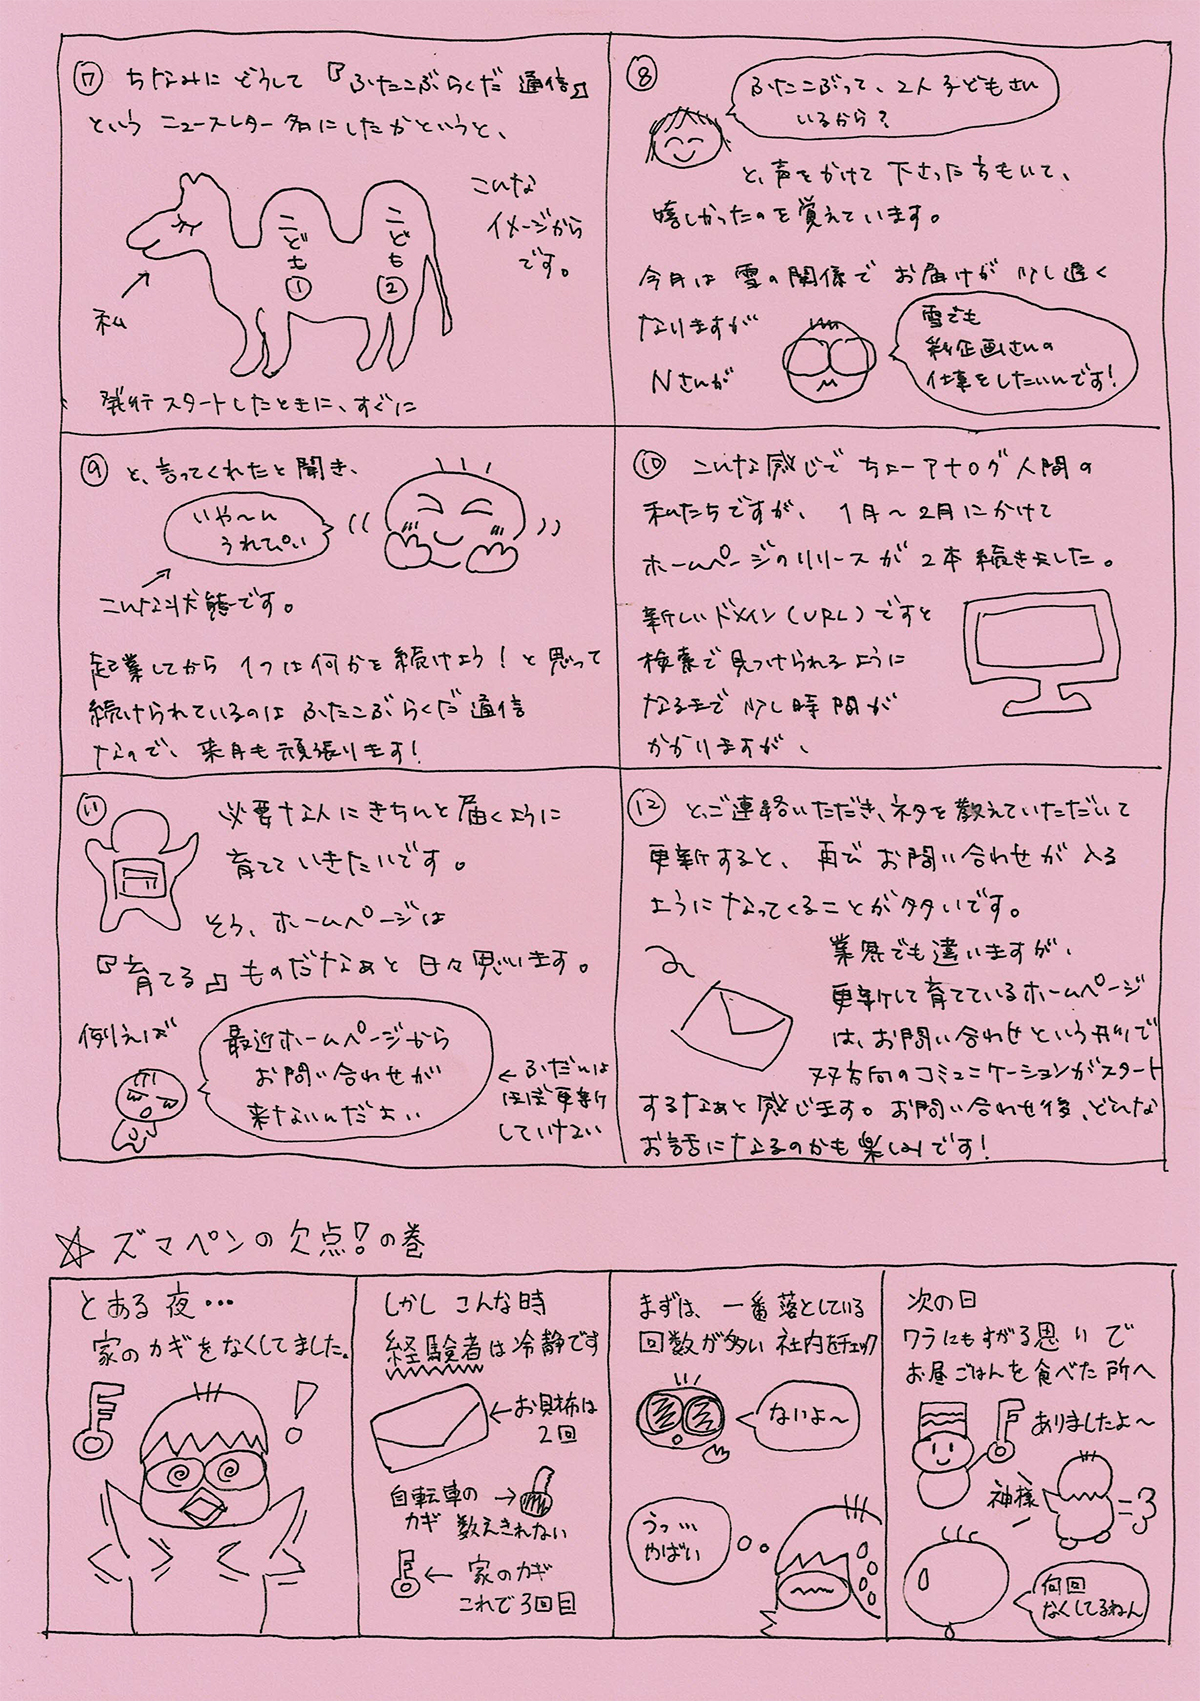 ⑦ ちなみに どうして 『ふたこぶらくだ 通信』
という ニュースレター名にしたかというと、
こんな
イメージから
です。
こども①
こども②
私
発行スタートしたときに、すぐに
⑧ ふたこぶって、2人子どもさん
いるから?
と、声をかけて下さった方もいて、
嬉しかったのを覚えています。
今月は雪の関係で お届けが少し遅く
なりますが
Nさんが
雪でも
彩企画さんの
仕事をしたいんです!
⑨ と、言ってくれたと聞き、
いや〜ん
うれぴい
こんな状態です。
起業してから 1つは何かを続けよう!と思って
続けられているのは ふたこぶらくだ通信
なので、来月も頑張ります!
⑩ こんな感じで ちょーアナログ人間の
私たちですが、1月〜2月にかけて
ホームページのリリースが2本続きました。
新しいドメイン(URL)ですと
検索で見つけられるように
なるまで 少し時間が
かかりますが、
⑪ 必要な人にきちんと届くように
育てていきたいです。
そう、ホームページは
『育てる』ものだなぁと日々思います。
例えば
最近ホームページから
お問い合わせが
来ないんだよい
←ふだんは
ほぼ更新
していけない
⑫ と、ご連絡いただき、ネタを教えていただいて
更新すると、再びお問い合わせが入る
ようになってくることが多いです。
業界でも違いますが、
更新して育てているホームページ
は、お問い合わせという形で
双方向のコミュニケーションがスタート
するなぁと感じます。お問い合わせ後、どんな
お話になるのかも楽しみです!
☆ ズマペンの欠点!の巻
とある夜…
家のカギをなくしてました。
!
しかし こんな時
経験者は冷静です
←お財布は
2回
自転車の→
カギ 数えきれない
←家のカギ
これで3回目
まずは、一番落としている
回数が多い 社内をチェック
ないよ〜
うっ…
やばい
次の日
ワラにもすがる思いで
お昼ごはんを食べた所へ
ありましたよ〜
神様
何回
なくしてるねん